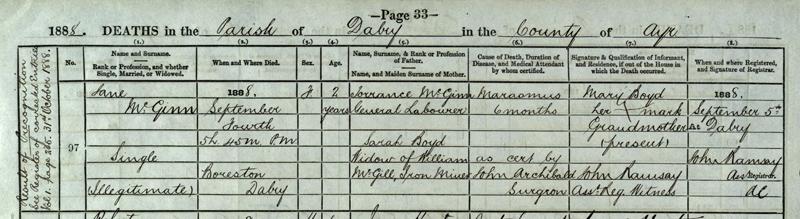 —Page 33—
1888. DEATHS in the Parish of Dalry in the County of Ayr
(1.) (2.) (3.) (4.) (5.) (6.) (7.) (8.)
No. Name and Surname. Rank or Profession, and whether Single, Married, or Widowed. When and Where Died. Sex. Age. Name, Surname, & Rank or Profession of Father. Name, and Maiden Surname of Mother. Cause of Death, Duration of Disease, and Medical Attendant by whom certified. Signature & Qualification of Informant, and Residence, if out of the House in which the Death occurred. When and where Registered, and Signature of Registrar.
Result of Precognition
See Register of corrected Entries
Vol 1. page 245. 31st October 1888.
97
Jane
McGinn
Single
(Illegitimate)
1888.
September
Fourth
5h. 45m. P M
Boreston
Dalry
F
2
years
Torrance McGinn
General Labourer
Sarah Boyd
Widow of William
McGill, Iron Miner
Marasmus
6 months
as cert by
John Archibald
Surgeon
Mary Boyd
her mark
Grandmother
(present)
John Ramsay
Asst. Reg. Witness
1888.
September 5th
At Dalry
John Ramsay
Asst Registrar.